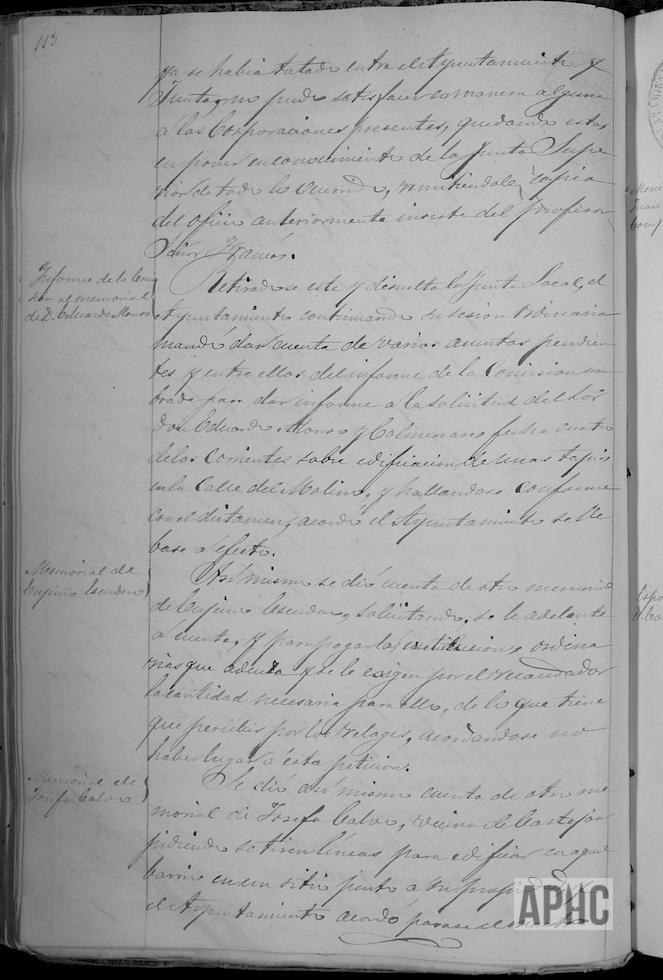 113
ya se había tratado entre el Ayuntamiento y
Junta, no pudo satisfacer de manera alguna
a las Corporaciones presentes, quedando estas
en poner en conocimiento de la Junta Supe-
rior de todo lo ocurrido, remitiendole copia
del oficio anteriormente inserto del profesor
Señor Francés.
Informe de la Comi
sion al memorial
de D. Eduardo Alonso
Retirado se este y disuelta la Junta Local, el
Ayuntamiento continuando su sesion ordinaria
mandó dar cuenta de varios asuntos pendien-
tes y entre ellos del informe de la Comision nom
brada para dar informe a la solicitud del Sor
Don Eduardo Alonso y Colmenares fecha cuatro
de los corrientes sobre edificacion de unas tapias
en la Calle del Molino, y hallandose conforme
con el dictamen, acordó el Ayuntamiento se lle-
base a efecto.
Memorial de
Eugenio Escudero
Asi mismo se dió cuenta de otro memorial
de Eugenio Escudero, solicitando, se le adelante
a cuenta, y para pagar las contribuciones ordina
rias que adeuda y se le exigen por el recaudador
la cantidad necesaria para ello, de lo que tiene
que percibir por los relojes, acordandose no
haber lugar a esta peticion.
Memorial de
Josefa Calvo
Se dió asi mismo cuenta de otro me-
morial de Josefa Calvo, vecina de Castejon
pidiendo se tiren lineas para edificar en aquel
barrio en un sitio junto a su propiedad y
el Ayuntamiento acordó pasase al
APHC